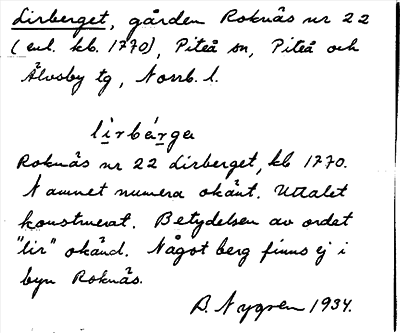 Lirberget, gården Roknäs nr 22
(enl. kb. 1770), Piteå sn, Piteå och
Älvsby tg, Norrb. l.
lirbárga
Roknäs nr 22 Lirberget, kb 1770.
Namnet numera okänt. Uttalet
konstruerat. Betydelsen av ordet
"lir" okänd. Något berg finns ej i
byn Roknäs.
B. Nygren 1934.